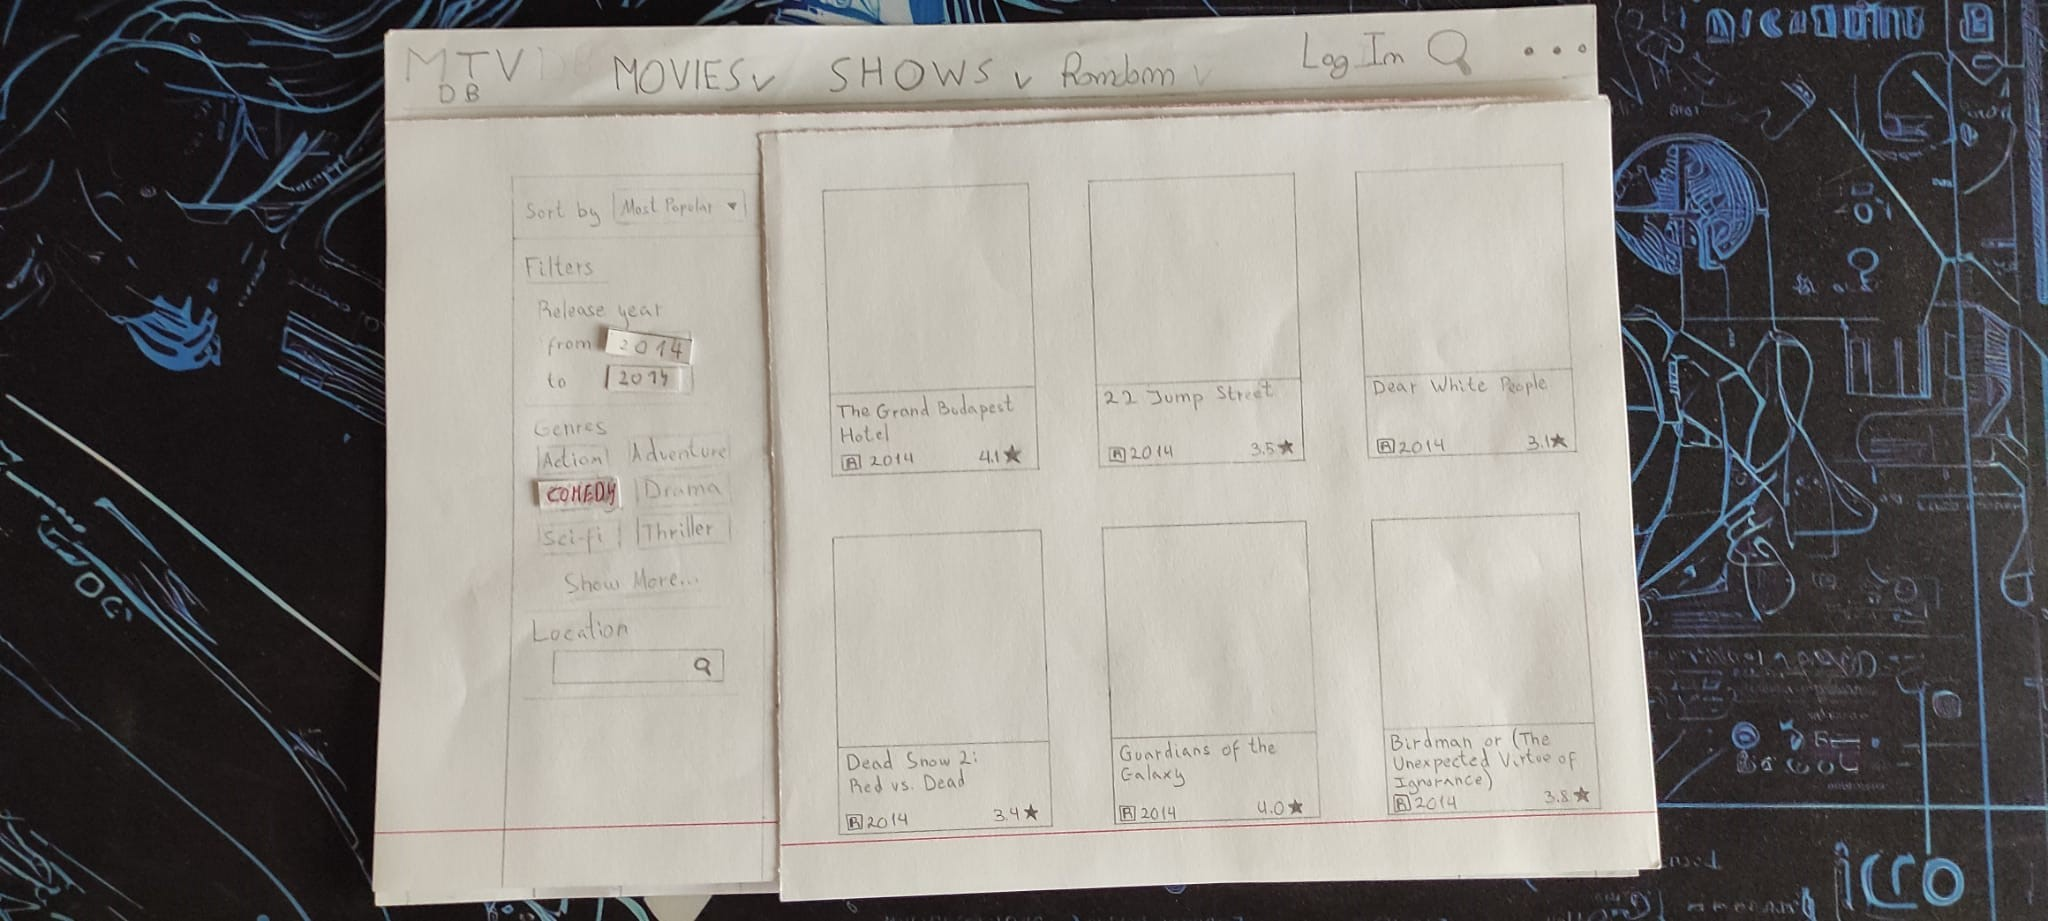 MTV
DB
MOVIES
SHOWS
Random
Log In
Sort by Most Popular
Filters
Release year
from 2014
to 2014
Genres
Action Adventure
COMEDY Drama
Sci-fi Thriller
Show More...
Location
The Grand Budapest
Hotel
R 2014 4.1★
22 Jump Street
R 2014 3.5★
Dear White People
R 2014 3.1★
Dead Snow 2:
Red vs. Dead
R 2014 3.4★
Guardians of the
Galaxy
R 2014 4.0★
Birdman or (The
Unexpected Virtue of
Ignorance)
R 2014 3.8★